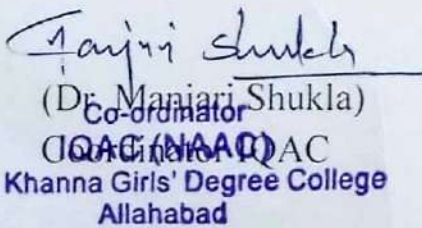 Manjari Shukla
(Dr. Manjari Shukla)
Co-ordinator
Coordinator IQAC
IQAC (NAAC)
Khanna Girls' Degree College
Allahabad